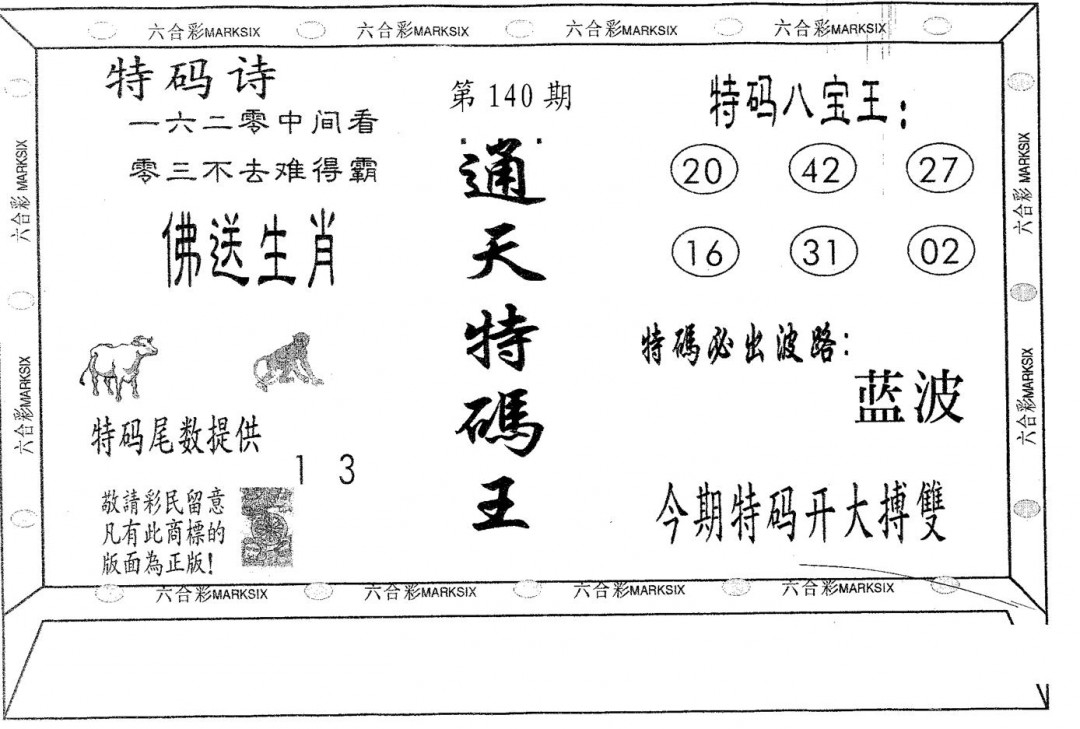 六合彩MARKSIX 六合彩MARKSIX 六合彩MARKSIX 六合彩MARKSIX
六合彩 MARKSIX
六合彩MARKSIX
特码诗
一六二零中间看
零三不去难得霸
佛送生肖
特码尾数提供
1 3
敬請彩民留意
凡有此商標的
版面為正版!
第140期
通天特碼王
特码八宝王:
20 42 27
16 31 02
特碼必出波路:
蓝波
今期特码开大搏雙
六合彩 MARKSIX
六合彩MARKSIX
六合彩MARKSIX 六合彩MARKSIX 六合彩MARKSIX 六合彩MARKSIX